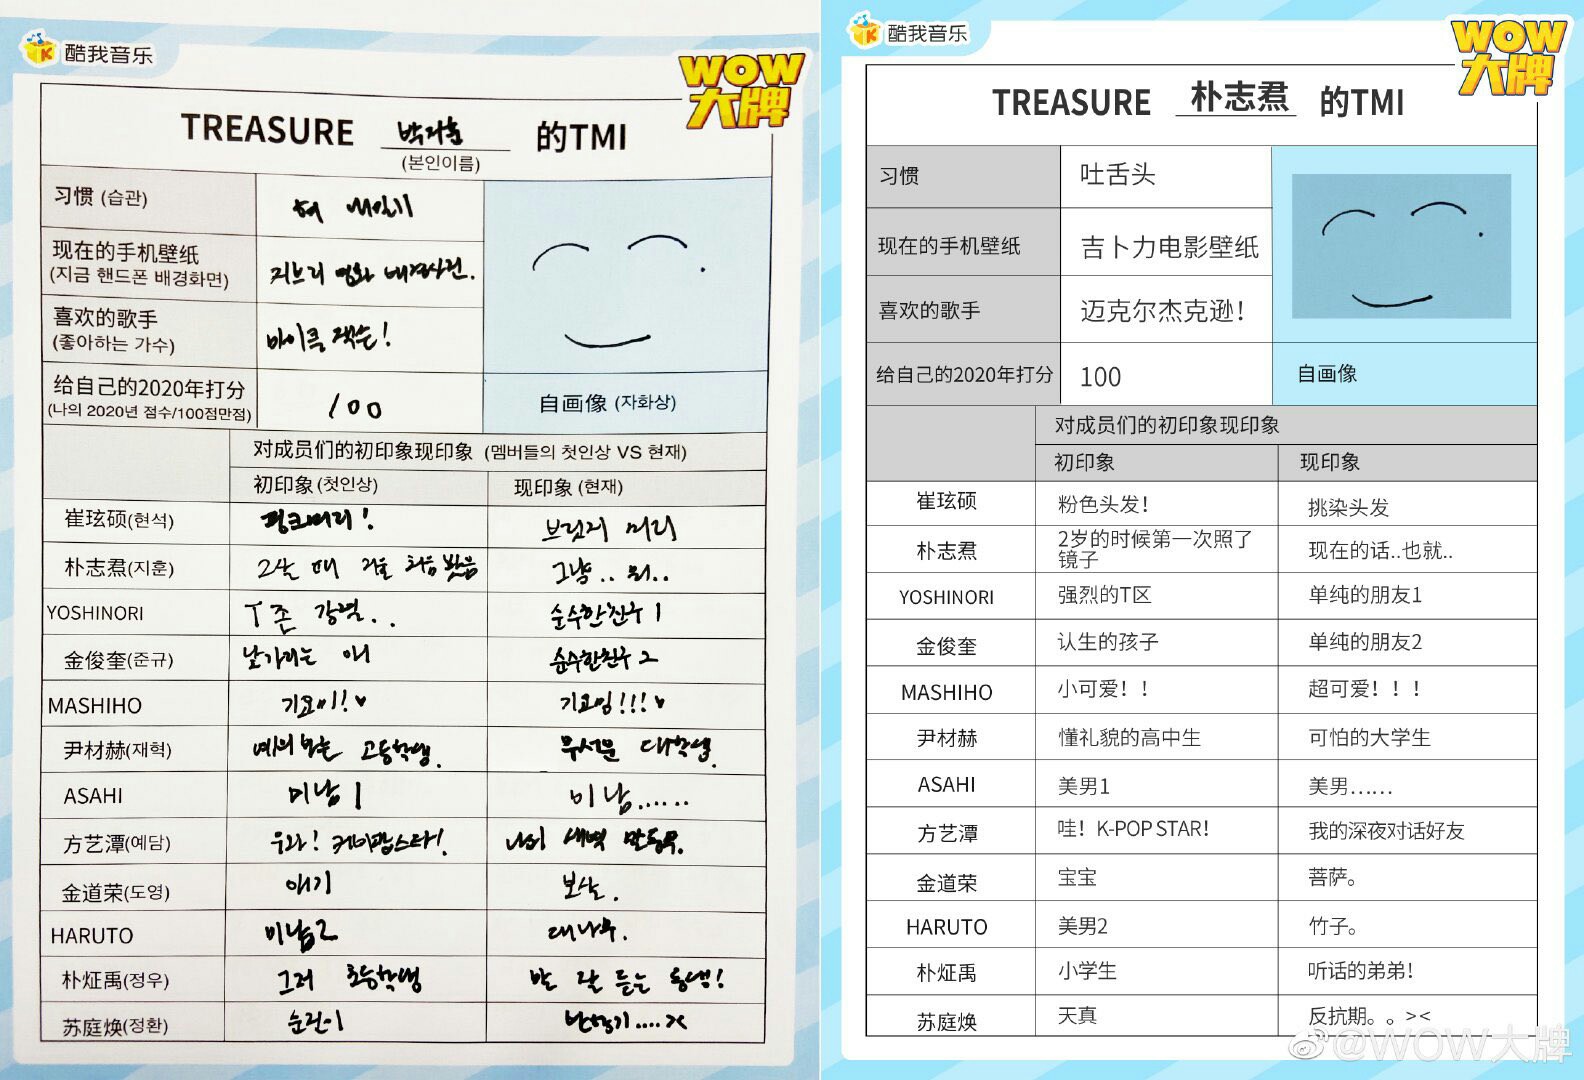 酷我音乐
WOW
大牌
TREASURE 박지훈 的TMI
(본인이름)
习惯 (습관)
혀 내밀기
现在的手机壁纸
(지금 핸드폰 배경화면)
지브리 영화 배경사진.
喜欢的歌手
(좋아하는 가수)
마이클 잭슨!
给自己的2020年打分
(나의 2020년 점수/100점만점)
100
自画像 (자화상)
对成员们的初印象现印象 (멤버들의 첫인상 VS 현재)
初印象 (첫인상)
现印象 (현재)
崔玹硕(현석)
핑크머리!
브릿지 머리
朴志焄(지훈)
2살 때 거울 처음 봤음
그냥.. 뭐..
YOSHINORI
T존 강렬..
순수한친구1
金俊奎(준규)
낯가리는 애
순수한친구2
MASHIHO
기요미!♥
기요밍!!!♥
尹材赫(재혁)
예의 밝은 고등학생.
무서운 대학생.
ASAHI
미남1
미남......
方艺潭(예담)
우와! 케이팝스타!
나의 새벽 말동무.
金道荣(도영)
애기
보살.
HARUTO
미남2
대나무.
朴炡禹(정우)
그저 초등학생
말 잘 듣는 동생!
苏庭焕(정환)
순진이
반항기....><
酷我音乐
WOW
大牌
TREASURE 朴志焄 的TMI
习惯
吐舌头
现在的手机壁纸
吉卜力电影壁纸
喜欢的歌手
迈克尔杰克逊！
给自己的2020年打分
100
自画像
对成员们的初印象现印象
初印象
现印象
崔玹硕
粉色头发！
挑染头发
朴志焄
2岁的时候第一次照了
镜子
现在的话..也就..
YOSHINORI
强烈的T区
单纯的朋友1
金俊奎
认生的孩子
单纯的朋友2
MASHIHO
小可爱！！
超可爱！！！
尹材赫
懂礼貌的高中生
可怕的大学生
ASAHI
美男1
美男……
方艺潭
哇！K-POP STAR！
我的深夜对话好友
金道荣
宝宝
菩萨。
HARUTO
美男2
竹子。
朴炡禹
小学生
听话的弟弟！
苏庭焕
天真
反抗期。。><
@WOW大牌